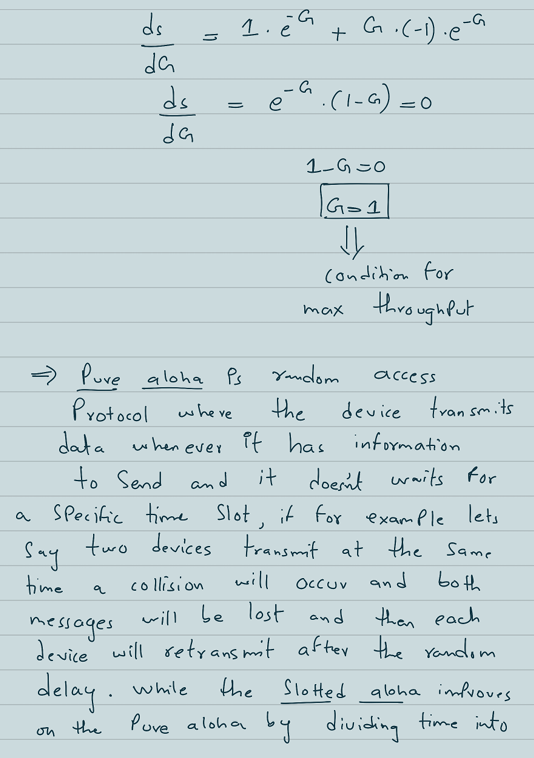 ds/dG = 1 · e^-G + G · (-1) · e^-G
ds/dG = e^-G · (1-G) = 0
1-G=0
G=1
⇓
condition for
max throughput
⇒ Pure aloha is random access
Protocol where the device transmits
data whenever it has information
to Send and it doesn't waits for
a specific time Slot, if for example lets
Say two devices transmit at the same
time a collision will occur and both
messages will be lost and then each
device will retransmit after the random
delay. while the Slotted aloha improves
on the Pure aloha by dividing time into